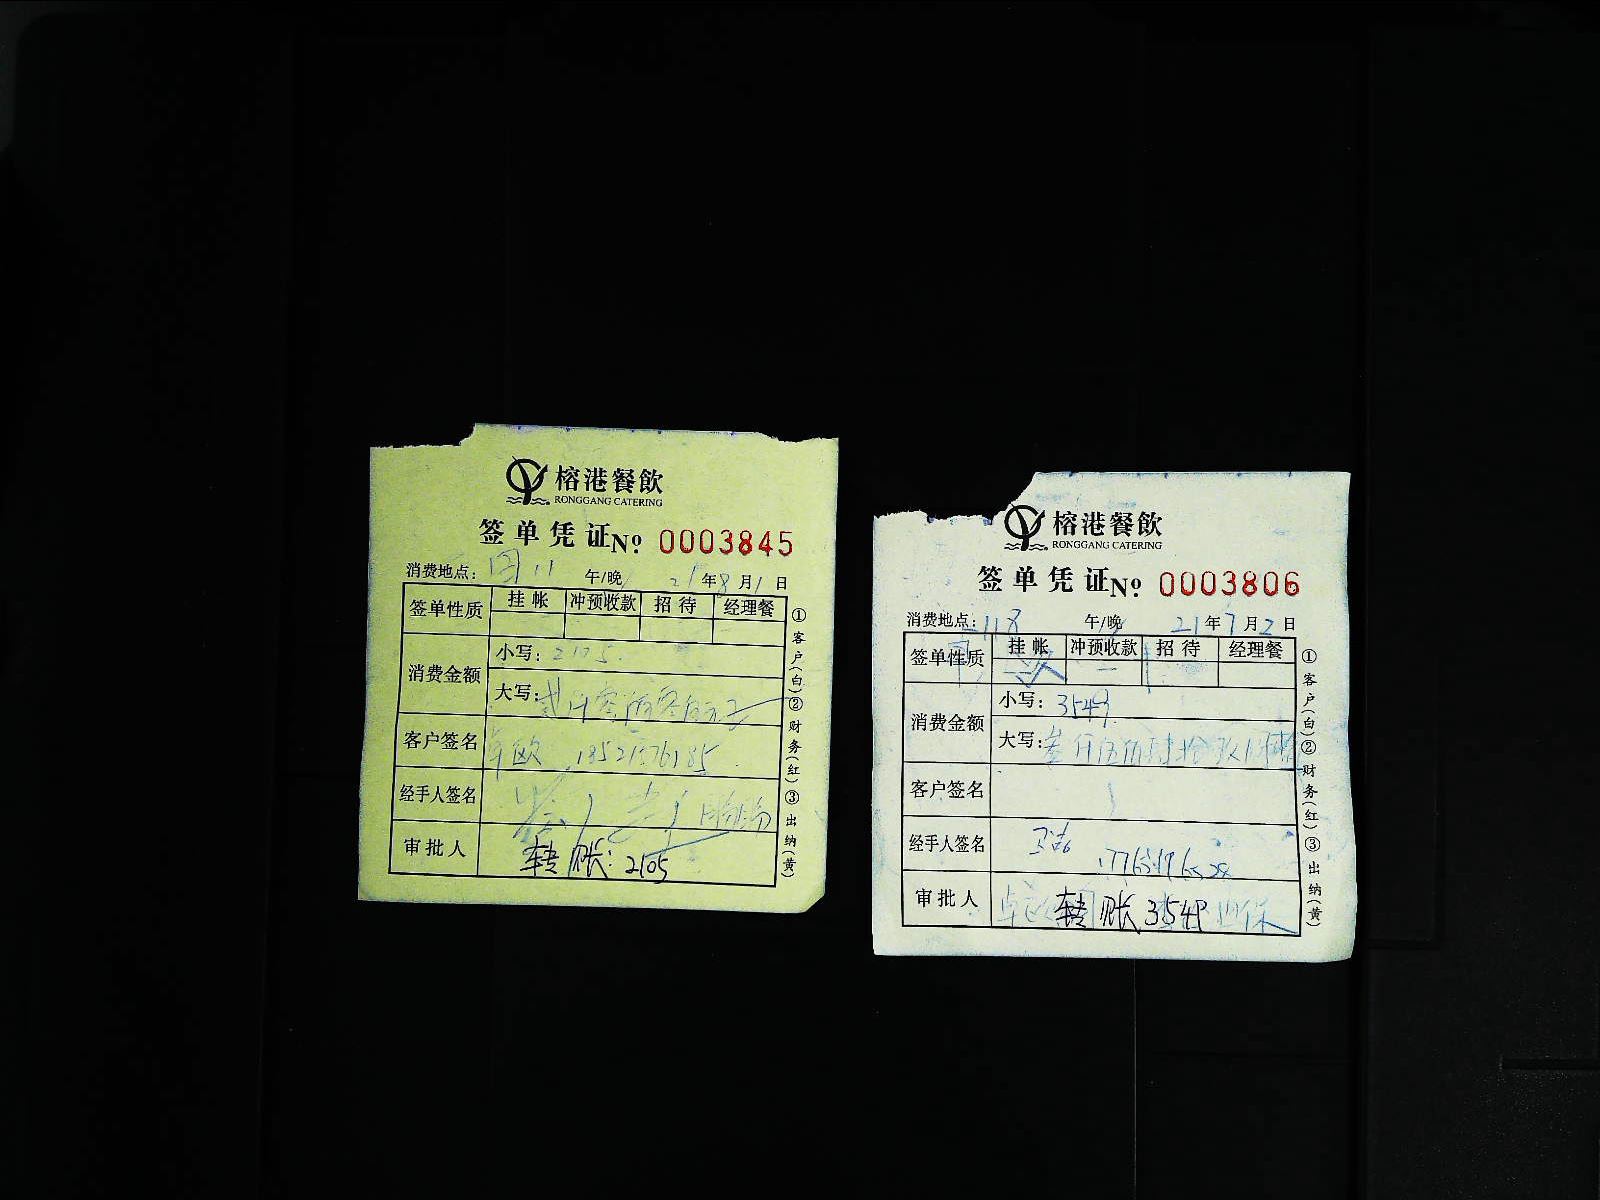 榕港餐飲
RONGGANG CATERING
签单凭证№ 0003845
消费地点： 午/晚 21年8月1日
签单性质 挂帐 冲预收款 招待 经理餐
消费金额 小写：2105.
大写：贰仟零佰零伍元
客户签名 卓欧 18521576185
经手人签名
审批人 转账：2105
①客户(白)②财务(红)③出纳(黄)
榕港餐飲
RONGGANG CATERING
签单凭证№ 0003806
消费地点：118 午/晚 21年7月2日
签单性质 挂帐 冲预收款 招待 经理餐
消费金额 小写：3549
大写：叁仟伍佰肆拾玖
客户签名
经手人签名
审批人 转账 3549
①客户(白)②财务(红)③出纳(黄)